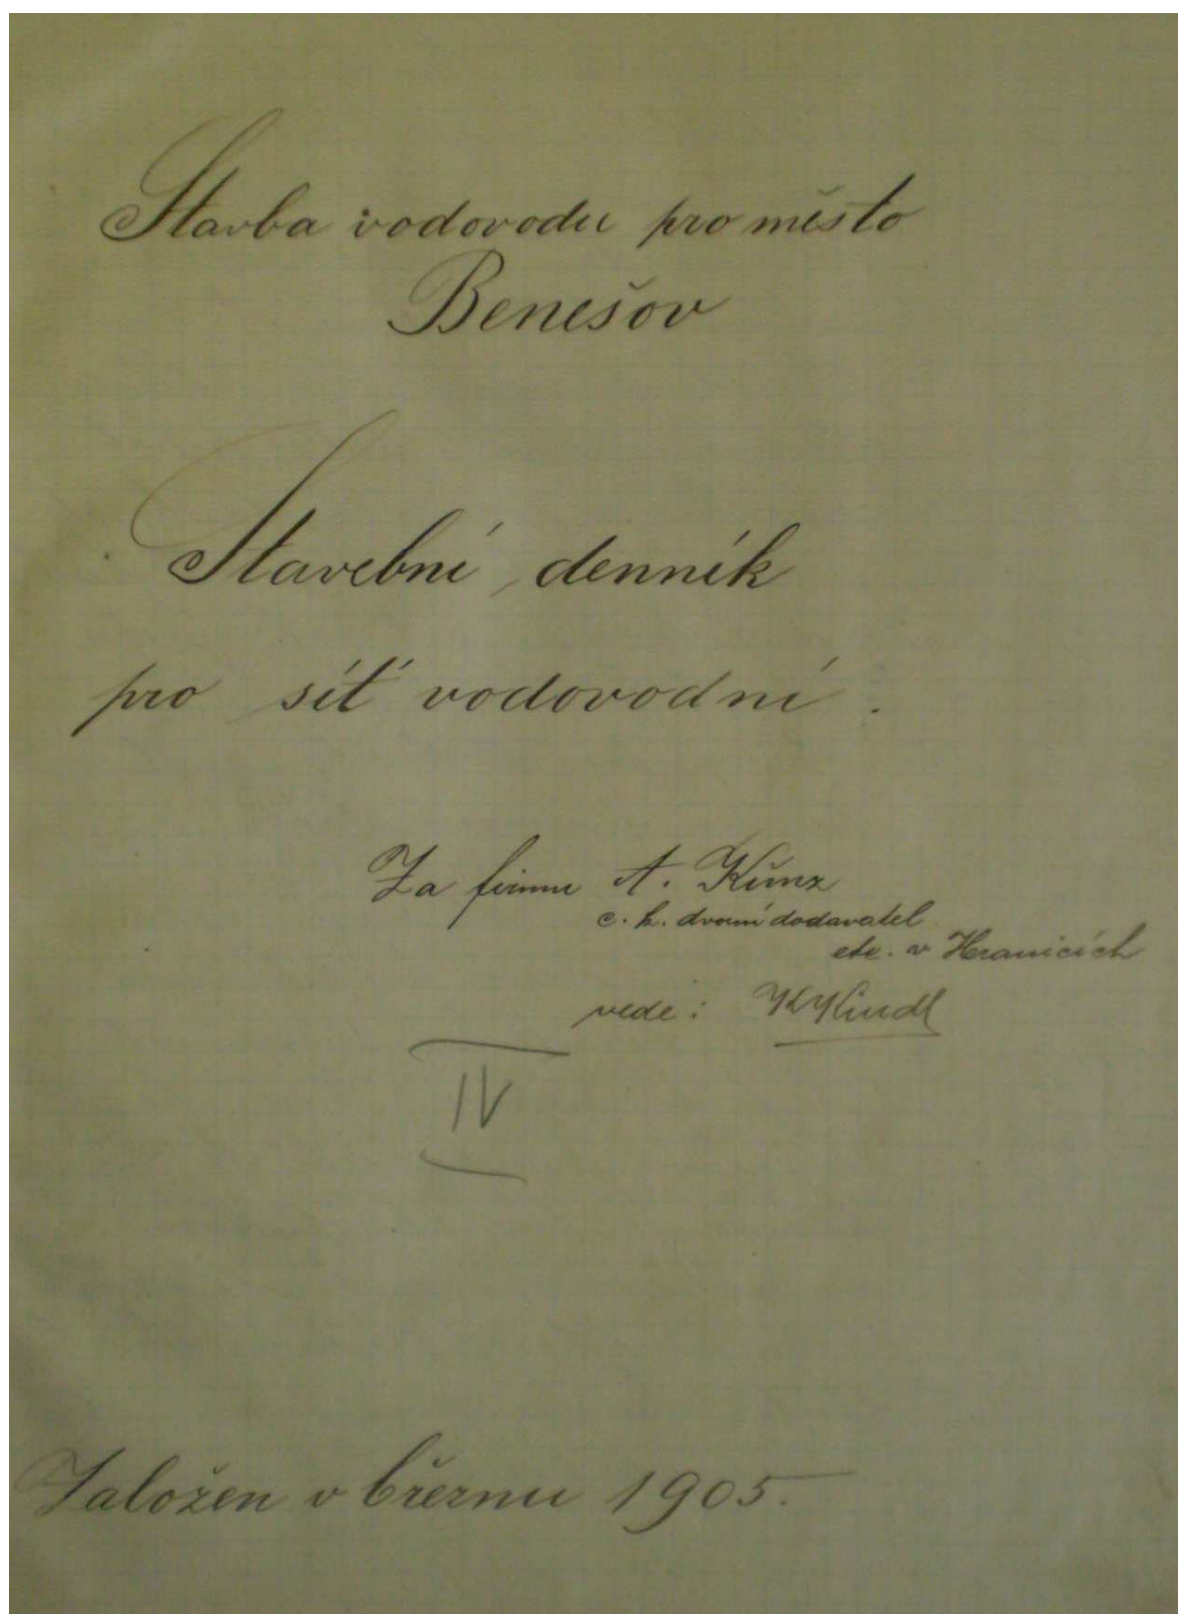 Stavba vodovodu pro město
Benešov
Stavební denník
pro síť vodovodní.
Za firmu A. Kunz
c. k. dvorní dodavatel
etc. v Hranicích
vede:
IV
Založen v březnu 1905.